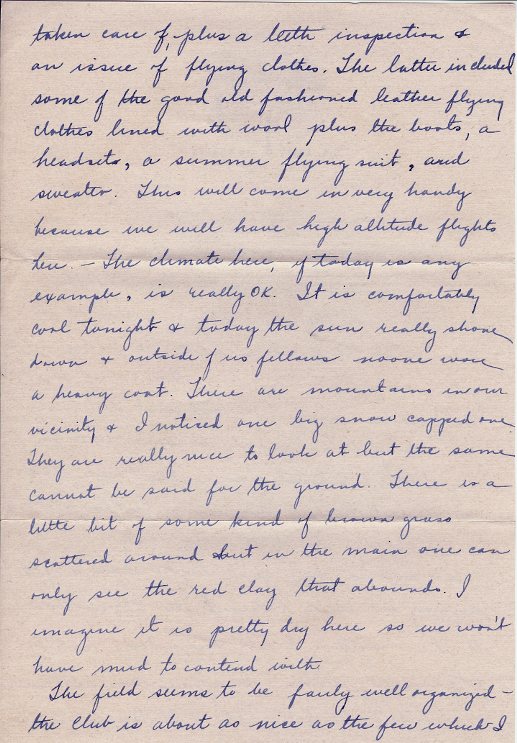 taken care of, plus a teeth inspection &
an issue of flying clothes. The latter included
some of the good old fashioned leather flying
clothes lined with wool plus the boots, a
headsets, a summer flying suit, and
sweater. This will come in very handy
because we will have high altitude flights
here. – The climate here, if today is any
example, is really OK. It is comfortably
cool tonight & today the sun really shone
down & outside of us fellows noone wore
a heavy coat. There are mountains in our
vicinity & I noticed one big snow capped one.
They are really nice to look at but the same
cannot be said for the ground. There is a
little bit of some kind of brown grass
scattered around but in the main one can
only see the red clay that abounds. I
imagine it is pretty dry here so we won't
have mud to contend with
The field seems to be fairly well organized –
the club is about as nice as the few which I